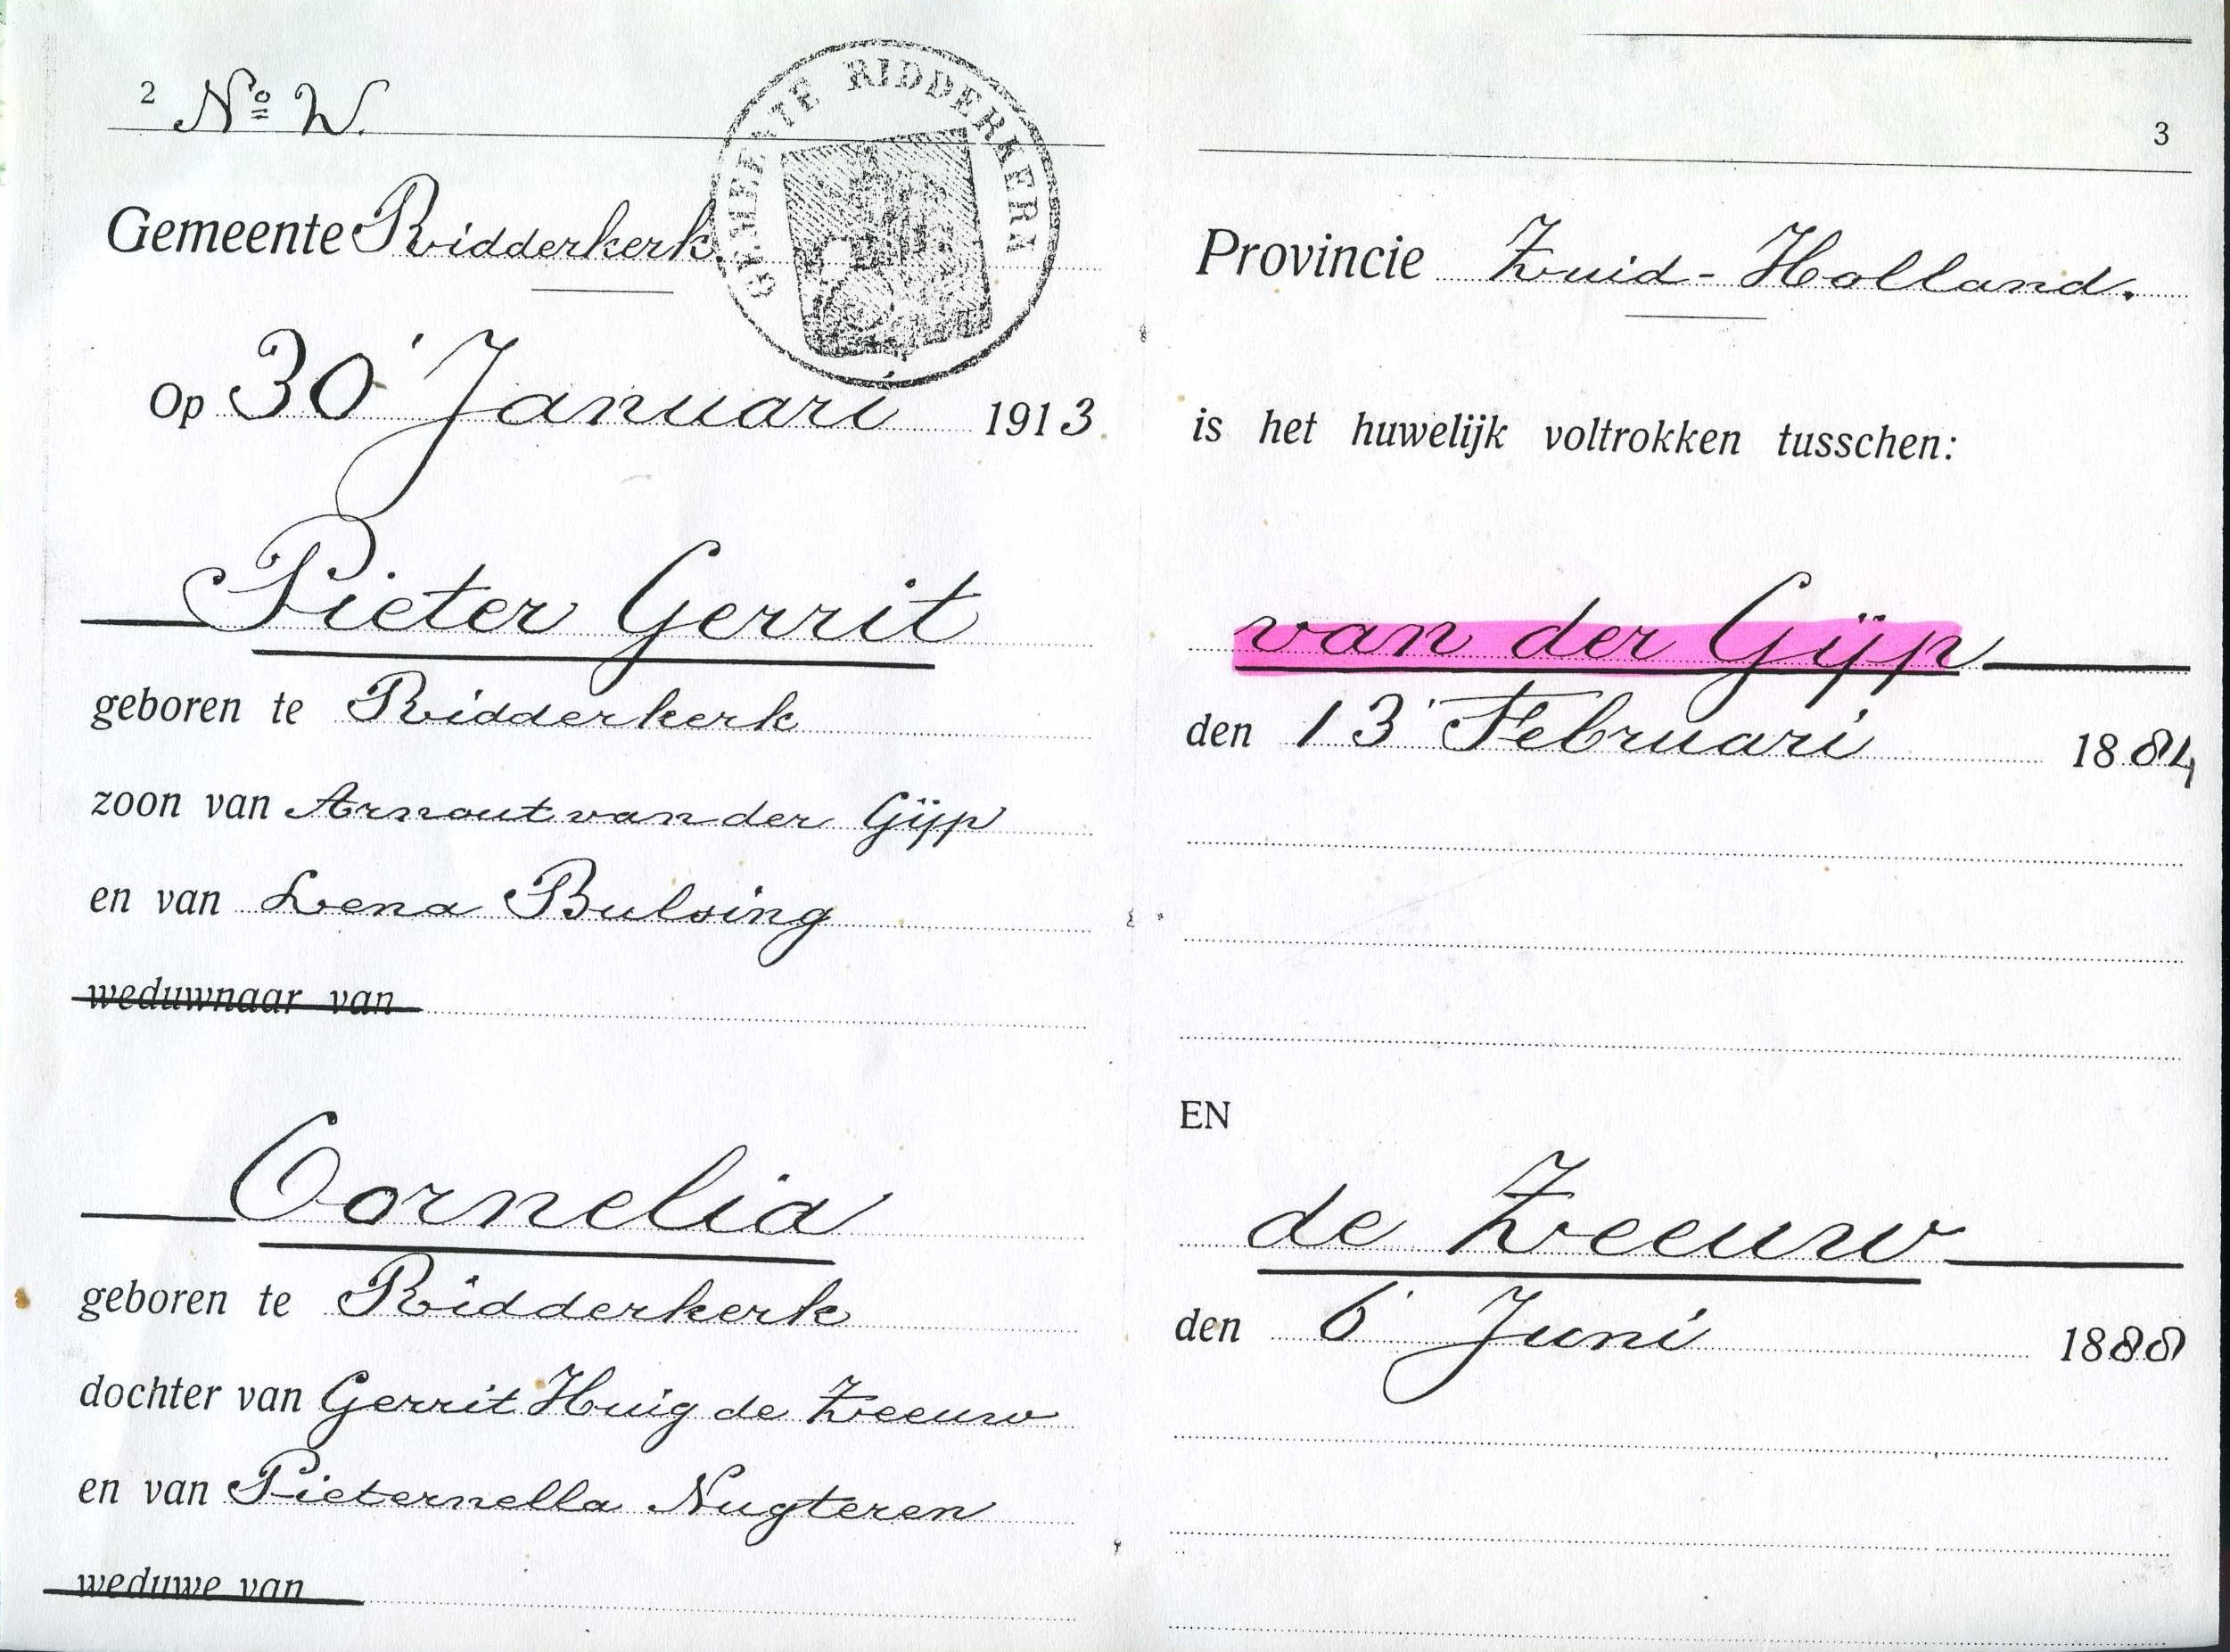 2 No W.
GEMEENTE RIDDERKERK
Gemeente Ridderkerk.
Op 30 Januari 1913
Pieter Gerrit
geboren te Ridderkerk
zoon van Arnout van der Gijp
en van Lena Bulsing
weduwnaar van
Cornelia
geboren te Ridderkerk
dochter van Gerrit Huig de Zeeuw
en van Pieternella Nugteren
weduwe van
3
Provincie Zuid-Holland.
is het huwelijk voltrokken tusschen:
van der Gijp
den 13 Februari 1884
EN
de Zeeuw
den 6 Juni 1888